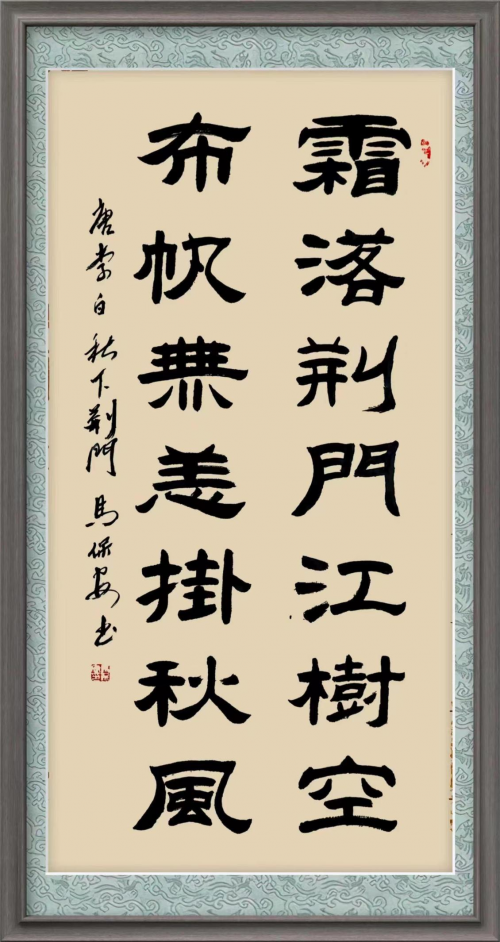 霜落荆門江樹空
布帆無恙掛秋風
唐李白秋下荆門 馬保安书